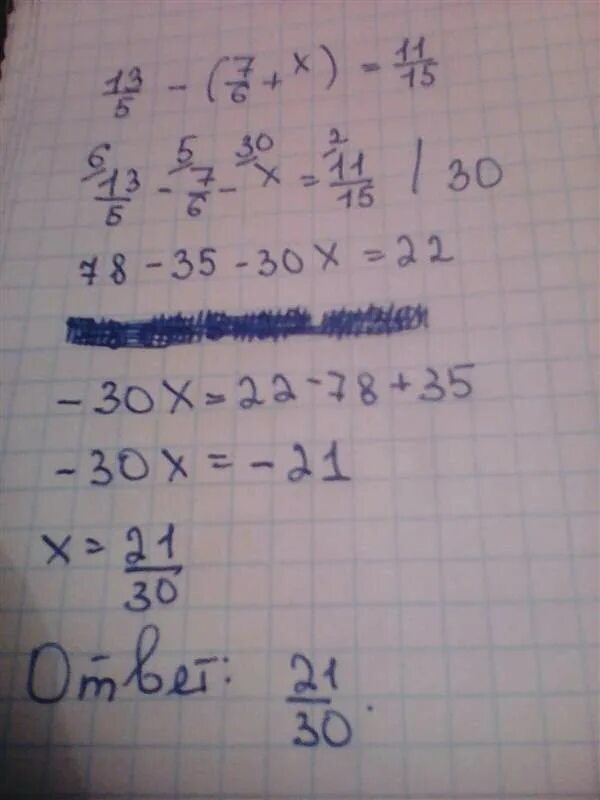 13/5 - (7/6 + x) = 11/15
6 13/5 - 5 7/6 - 30 x = 2 11/15 | 30
78 - 35 - 30x = 22
-30x = 22 - 78 + 35
-30x = -21
x = 21/30
Ответ: 21/30.